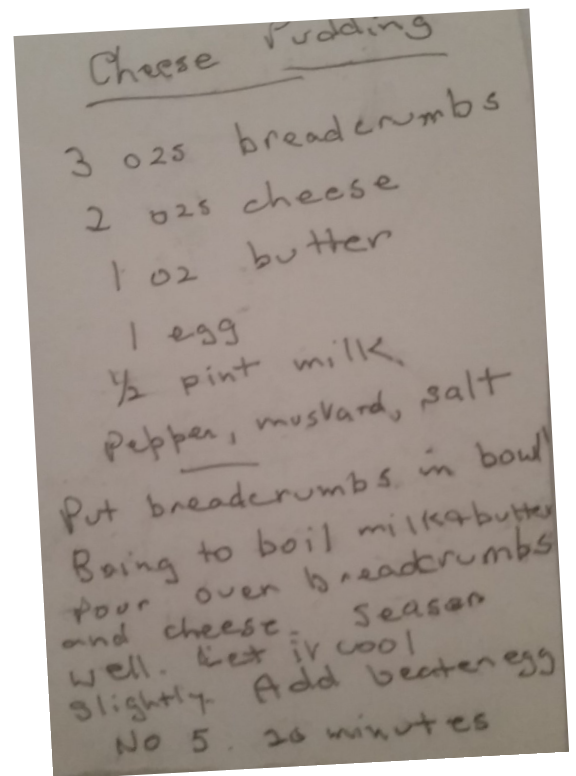 Cheese Pudding
3 ozs breadcrumbs
2 ozs cheese
1 oz butter
1 egg
1/2 pint milk.
Pepper, mustard, salt
Put breadcrumbs in bowl
Bring to boil milk & butter
pour over breadcrumbs
and cheese. Season
well. Let it cool
slightly. Add beaten egg
No 5. 20 minutes